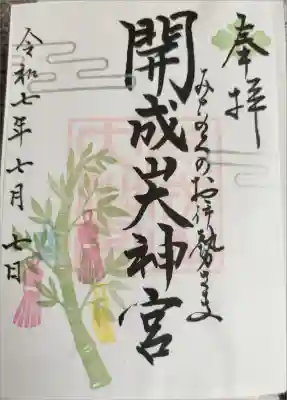 奉拝
みちのくのお伊勢さま
開成山大神宮
令和七年七月七日